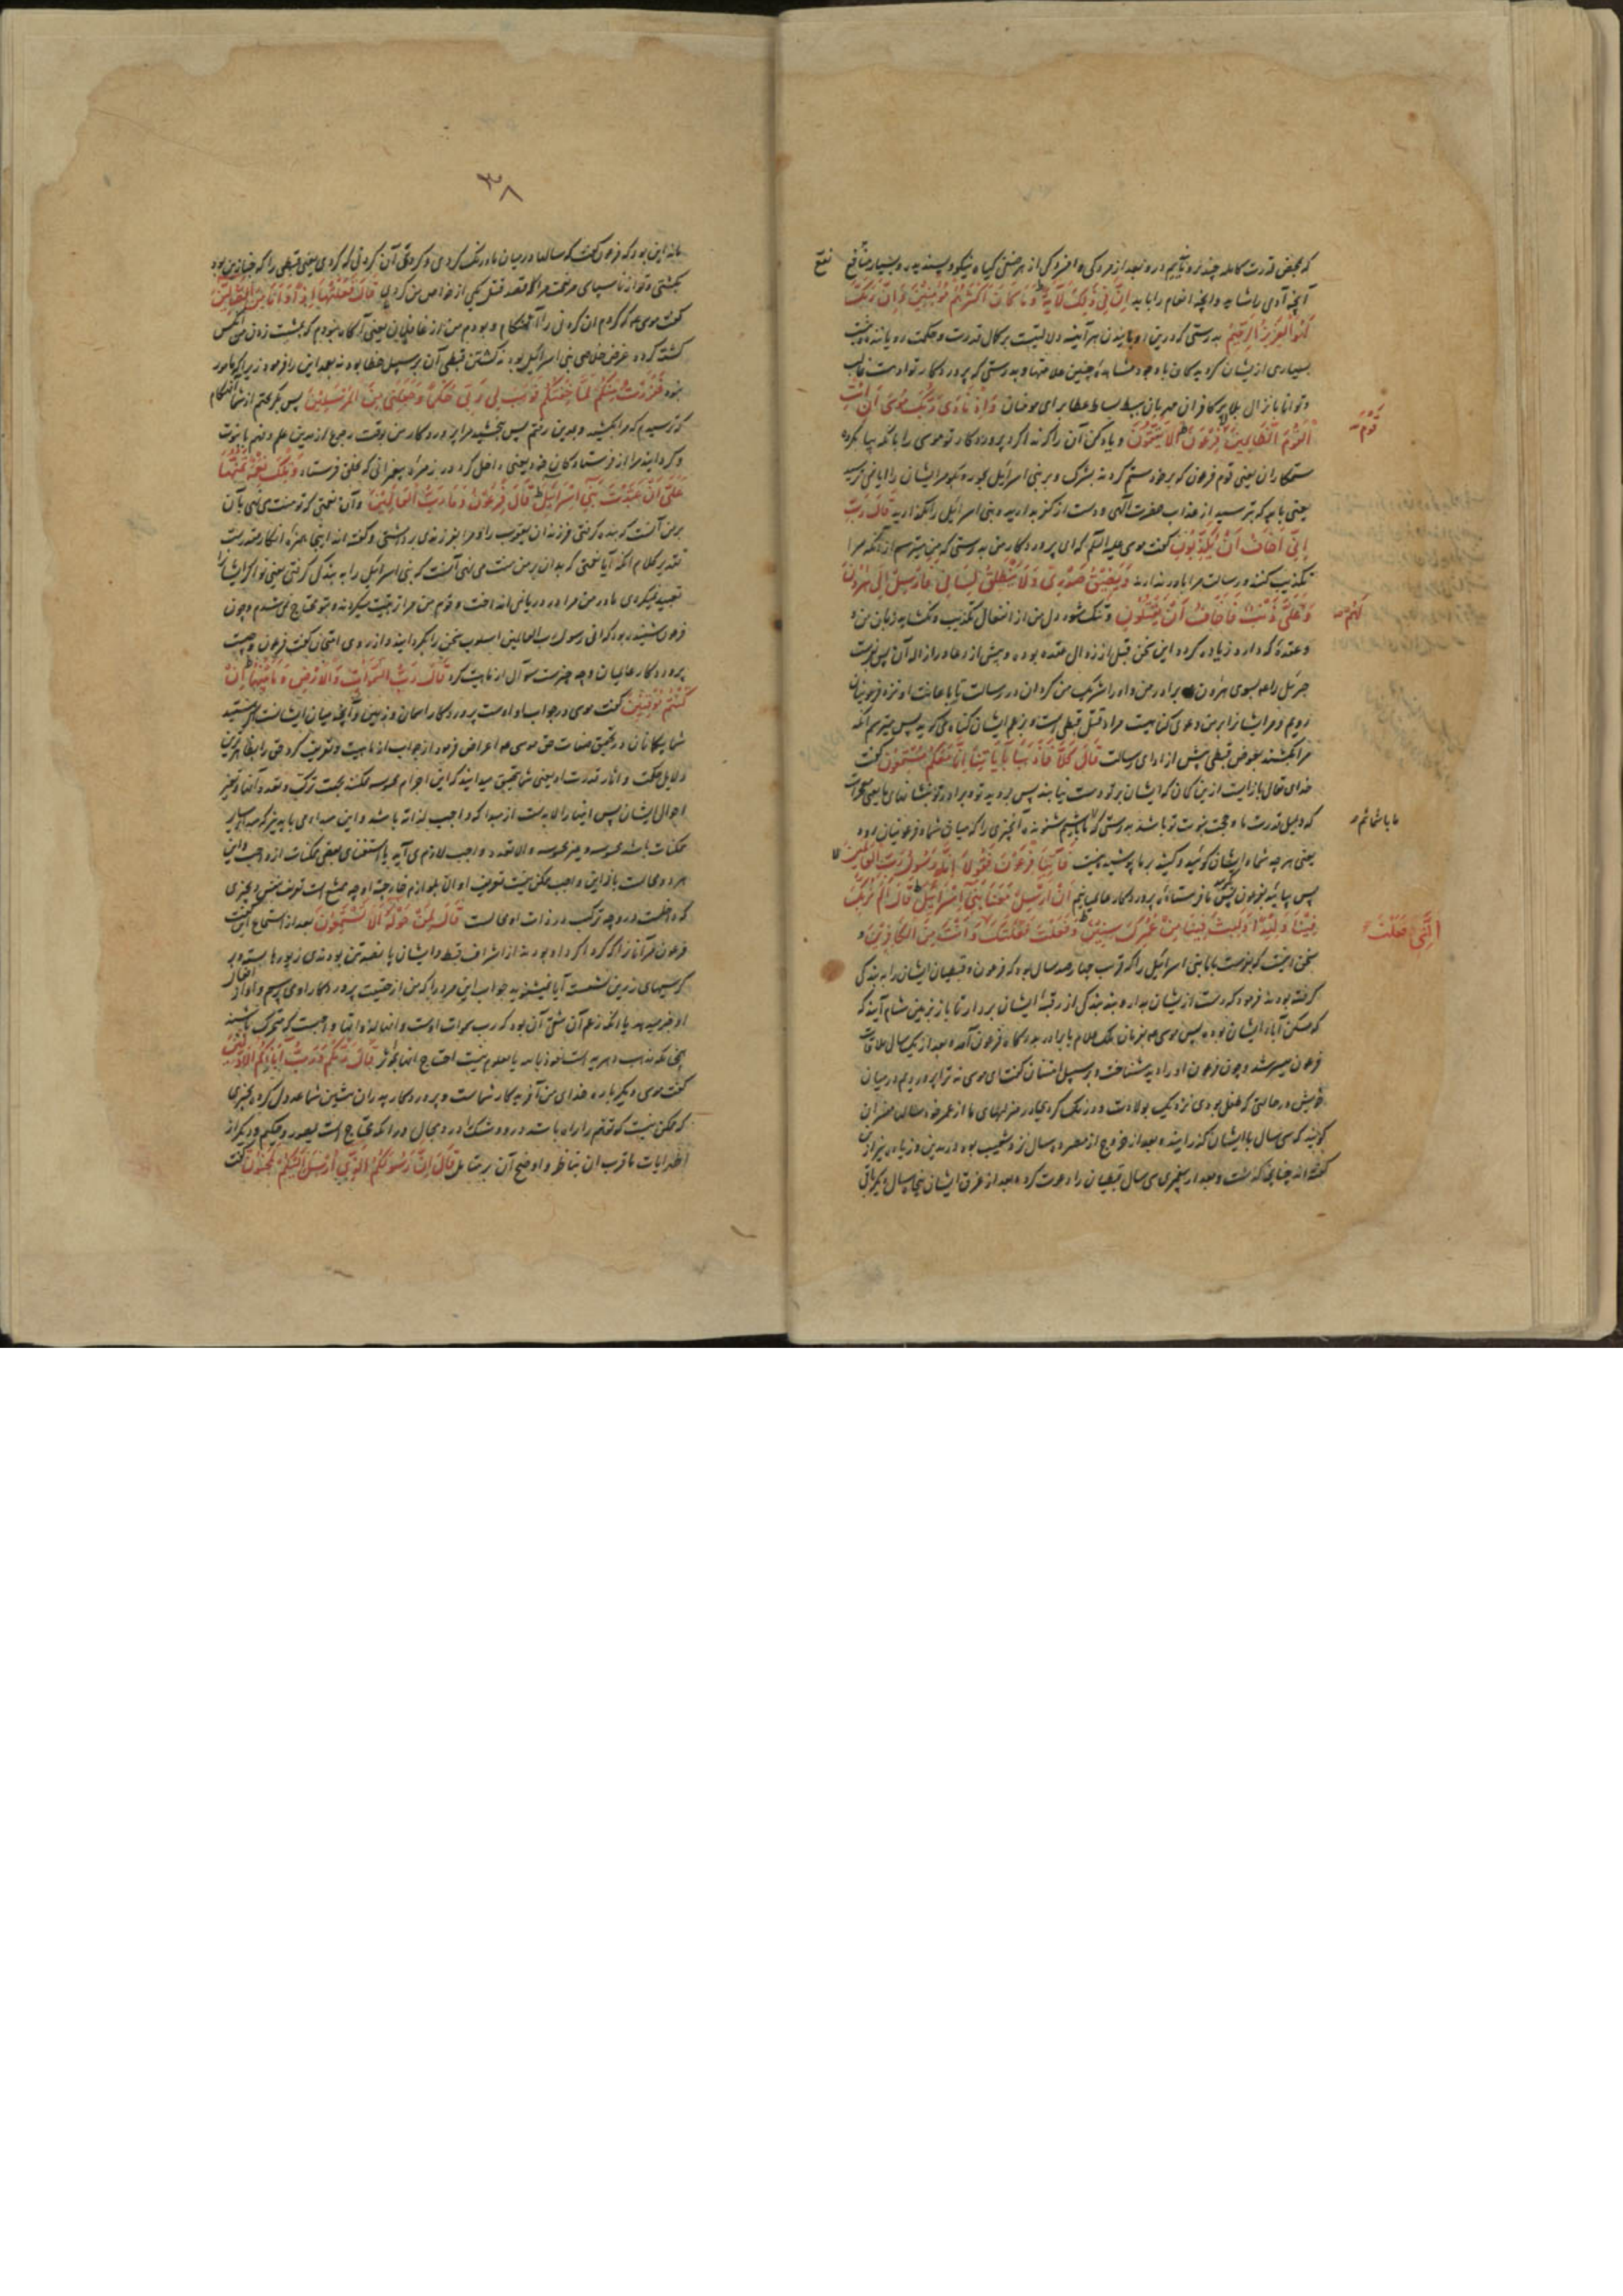 که بمحض قدرت کامله چند رویانیدیم درو بعد از مردگی و افسردگی از هر صنفی گیاه نیکو و پسندیده و بسیار منافع
آنچه آدمی را شاید و آنچه انعام را باید اِنَّ فِی ذٰلِکَ لَآیَةً وَمَا کَانَ اَکْثَرُهُمْ مُؤْمِنِیْنَ وَاِنَّ رَبَّکَ
لَهُوَ الْعَزِیْزُ الرَّحِیْمُ بدرستی که درین رویانیدن هر آینه دلالتیست بر کمال قدرت و حکمت رویاننده
بسیاری از یشان گرویدگان با وجود مشاهده چنین علامتها و بدرستی که پروردگار تو اوست غالب
و توانا بانزال بلا بر کافران مهربان ببسط بساط عطا برای مومنان وَاِذْ نَادٰی رَبُّکَ مُوْسٰی اَنِ ائْتِ
الْقَوْمَ الظَّالِمِیْنَ قَوْمَ فِرْعَوْنَ اَلَا یَتَّقُوْنَ و یاد کن آن را که ندا کرد پروردگار تو موسی را بانکه بیا بگروه
ستمکاران یعنی قوم فرعون که بر خود ستم کردند بشرک و بر بنی اسرائیل بجور و بگو مر ایشان را آیا نمی ترسید
یعنی باید که بترسید از عذاب حضرت الهی و دست از کفر بدارید و بنی اسرائیل را بگذارید قَالَ رَبِّ
اِنِّی اَخَافُ اَنْ یُکَذِّبُوْنِ گفت موسی علیه السلم که ای پروردگار من بدرستی که من میترسم از آنکه مرا
تکذیب کنند و رسالت مرا باور ندارند وَیَضِیْقُ صَدْرِیْ وَلَا یَنْطَلِقُ لِسَانِی فَاَرْسِلْ اِلٰی هٰرُوْنَ
وَلَهُمْ عَلَیَّ ذَنْبٌ فَاَخَافُ اَنْ یَقْتُلُوْنِ و تنک شود دل من از انفعال تکذیب و نکشاید زبان من و
و عقده که دارد زیاده گردد این سخن قبل از زوال عقده بوده و پیش از دعا و ازاله آن پس بفرست
جبرئیل را به سوی هرون برادر من و او را شریک من گردان در رسالت تا باعانت او نزد فرعونیان
رویم و مر ایشانرا بر من دعوی گناهیست مراد قتل قبطی است و بزعم ایشان گناه میگوید پس میترسم آنکه
مرا بکشند بعوض قبطی پیش از ادای رسالت قَالَ کَلَّا فَاذْهَبَا بِآیَاتِنَا اِنَّا مَعَکُمْ مُسْتَمِعُوْنَ گفت
خدای تعالی بازایست ازین گمان که ایشان بر تو دست نیابند پس بروید تو و برادر تو بنشانهای ما یعنی معجزات
که دلیل قدرت ما و حجت نبوت تو باشد بدرستی که ما با شمائیم شنونده آنچیزی را که میان شما و فرعونیان رود
یعنی هر چه شما و ایشان گوئید و کنید بر ما پوشیده نیست فَاْتِیَا فِرْعَوْنَ فَقُوْلَا اِنَّا رَسُوْلُ رَبِّ الْعَالَمِیْنَ
پس بیائید بفرعون پس بگوئید ما فرستاده پروردگار عالمیانیم اَنْ اَرْسِلْ مَعَنَا بَنِیْ اِسْرَائِیْلَ قَالَ اَلَمْ نُرَبِّکَ
فِیْنَا وَلِیْدًا وَلَبِثْتَ فِیْنَا مِنْ عُمُرِکَ سِنِیْنَ وَفَعَلْتَ فَعْلَتَکَ الَّتِیْ فَعَلْتَ وَاَنْتَ مِنَ الْکَافِرِیْنَ و
سخن اینست که بفرست با ما بنی اسرائیل را که قرب چهار صد سال بود که فرعون و قبطیان ایشان را به بندگی
گرفته بودند فرمود که دست از یشان بدار و بند بندگی از رقبه ایشان بردار تا باز بزمین شام آیند که
که مسکن آباء ایشان بوده پس موسی و هرون بدرگاه فرعون آمد و بعد از یکسال ملاقات
فرعون میسر شد و چون فرعون او را دید بشناخت و بر سبیل امتنان گفت ای موسی نه ترا پروردیم در میان
خویش در حالتی که طفل بودی نزدیک بولادت و درنگ کردی در منزلهای ما از عمر خود سالها مفسران
گویند که سی سال با ایشان گذرانید و بعد از خروج از مصر ده سال نزد شعیب بود در مدین
گفته اند چنانچه گذشت و بعد از پیغمبری سی سال قبطیان را دعوت کرد و بعد از غرق ایشان پنجاه سال دیگر باقی
نفع
قَوْمَ
لَهُمْ
ما با شمائیم
الَّتِیْ فَعَلْتَ
۳۸
ماند این بود که فرعون گفت که سالها در میان ما درنگ کردی و کردی آن کردنی که کردی یعنی قبطی را که خباز من بود
بکشتی و تو از ناسپاسی مر نعمت مرا که قصد قتل یکی از خواص من کردی قَالَ فَعَلْتُهَا اِذًا وَاَنَا مِنَ الضَّالِّیْنَ
گفت موسی که کردم آن کردنی را آنهنگام و بودم من از غافلان یعنی آگاه نبودم که بمشت زدن من کس
کشته گردد غرض خلاصی بنی اسرائیل بود نه کشتن قبطی آن بر سبیل خطا بود نه بعمد این را فرمود زیرا که مامور
نبود فَفَرَرْتُ مِنْکُمْ لَمَّا خِفْتُکُمْ فَوَهَبَ لِی رَبِّی حُکْمًا وَجَعَلَنِی مِنَ الْمُرْسَلِیْنَ پس بگریختم از شما آنهنگام
که ترسیدم که مرا بکشید و بمدین رفتم پس بخشید مرا پروردگار من بوقت رجوع از مدین علم و فهم یا نبوت
و گردانید مرا از فرستادگان خود یعنی داخل کرد در زمره پیغمبرانی که بخلق فرستاد وَتِلْکَ نِعْمَةٌ تَمُنُّهَا
عَلَیَّ اَنْ عَبَّدْتَ بَنِیْ اِسْرَائِیْلَ قَالَ فِرْعَوْنُ وَمَا رَبُّ الْعَالَمِیْنَ و آن نعمتی که تو منت می نهی بآن
بر من آنست که بنده گرفتی فرزندان یعقوب را و مرا بفرزندی برداشتی و گفته اند اینجا همزه انکار مقدرست
تقدیر کلام آنکه آیا نعمتی که بدان بر من منت می نهی آنست که بنی اسرائیل را به بندگی گرفتی یعنی تو اگر ایشانرا
تعبید نمیکردی مادر من مرا در دریا نمی انداخت و قوم من مرا تربیت میکردند و بتو محتاج نمی شدم و چون
فرعون شنیده بود که انی رسول رب العالمین اسلوب سخن را بگردانید و از روی امتحان گفت فرعون و چیست
پروردگار عالمیان و چه چیزست سوال از ماهیت کرد قَالَ رَبُّ السَّمٰوَاتِ وَالْاَرْضِ وَمَا بَیْنَهُمَا اِنْ
کُنْتُمْ مُوْقِنِیْنَ گفت موسی در جواب او اوست پروردگار آسمان و زمین و آنچه میان ایشانست اگر هستید
شما بیگمانان در تحقیق صفات حق موسی اعراض فرمود از جواب از ماهیت و تعریف کرد حق را بظاهرترین
دلایل حکمت و آثار قدرت او یعنی شما بتحقیق میدانید که این اجرام محسوسه ممکنند بجهت ترکب و تعدد آنها و تغیر
احوال ایشان پس اینها را لابد است از مبدا که واجب لذاته باشد و این مبداء می باید نیز که مبداء سایر
ممکنات باشد محسوسه و غیر محسوسه و الا تعدد واجب لازم می آید یا استغنای بعضی ممکنات از واجب و این
هر دو محالست بنابراین واجب ممکن نیست تعریف او الا بلوازم خارجیه او چه ممتنع است تعریف بنفس و بچیزی
که داخلست درو چه ترکب در ذات او محالست قَالَ لِمَنْ حَوْلَهُ اَلَا تَسْتَمِعُوْنَ بعد از استماع گفت
فرعون مر آنانرا که گرداگرد او بودند از اشراف قبط و ایشان پانصد تن بودند زیورها بسته و بر
کرسیهای زرین نشسته آیا نمیشنوید جواب این مرد را که من از حقیقت پروردگار او می پرسم و او از افعال
او خبر میدهد یا آنکه زعم آن شقی آن بود که رب سموات اوست و آنها لذواتها واجبست که متحرک باشند
چنانکه مذهب دهریه است نعوذ بالله یا معلوم نیست احتیاج آنها بموثر قَالَ رَبُّکُمْ وَرَبُّ اٰبَائِکُمُ الْاَوَّلِیْنَ
گفت موسی دیگر باره خدای من آفریدگار شماست و پروردگار پدران پیشین شما عدول کرد بچیزی
که ممکن نیست که توهم را راه باشد درو و شک را درو مجال و آنکه محتاج است بمصور و حکیم و دیگر از
اظهر آیات و اقرب آن بناظر و اوضح آن بر متامل قَالَ اِنَّ رَسُوْلَکُمُ الَّذِیْ اُرْسِلَ اِلَیْکُمْ لَمَجْنُوْنٌ گفت